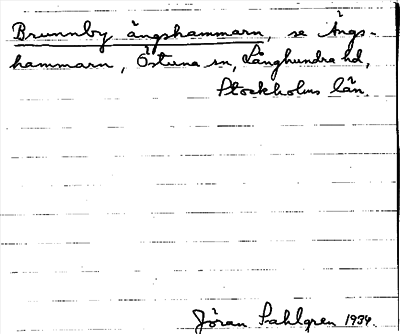 Brunnby ängshammarn, se Ängs-
hammarn, Östuna sn, Långhundra hd,
Stockholms län.
Jöran Sahlgren 1934